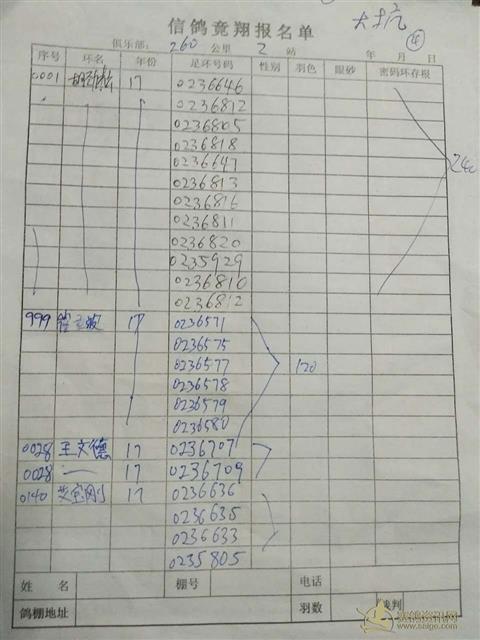 大坑
信鸽竟翔报名单 ④
俱乐部: 260 公里 2 站 年 月 日
序号 环名 年份 足环号码 性别 羽色 眼砂 密码环存根
0001 17 0236646
0236812
0236805
0236818
0236647
0236813
0236816
0236811
0236820
0235929
0236810
0236812
240
999 17 0236571
0236575
0236577 120
0236578
0236579
0236580
0028 王文德 17 0236707
0028 17 0236709
0140 17 0236636
0236635
0236633
0235805
姓名 棚号 电话
鸽棚地址 羽数 裁判